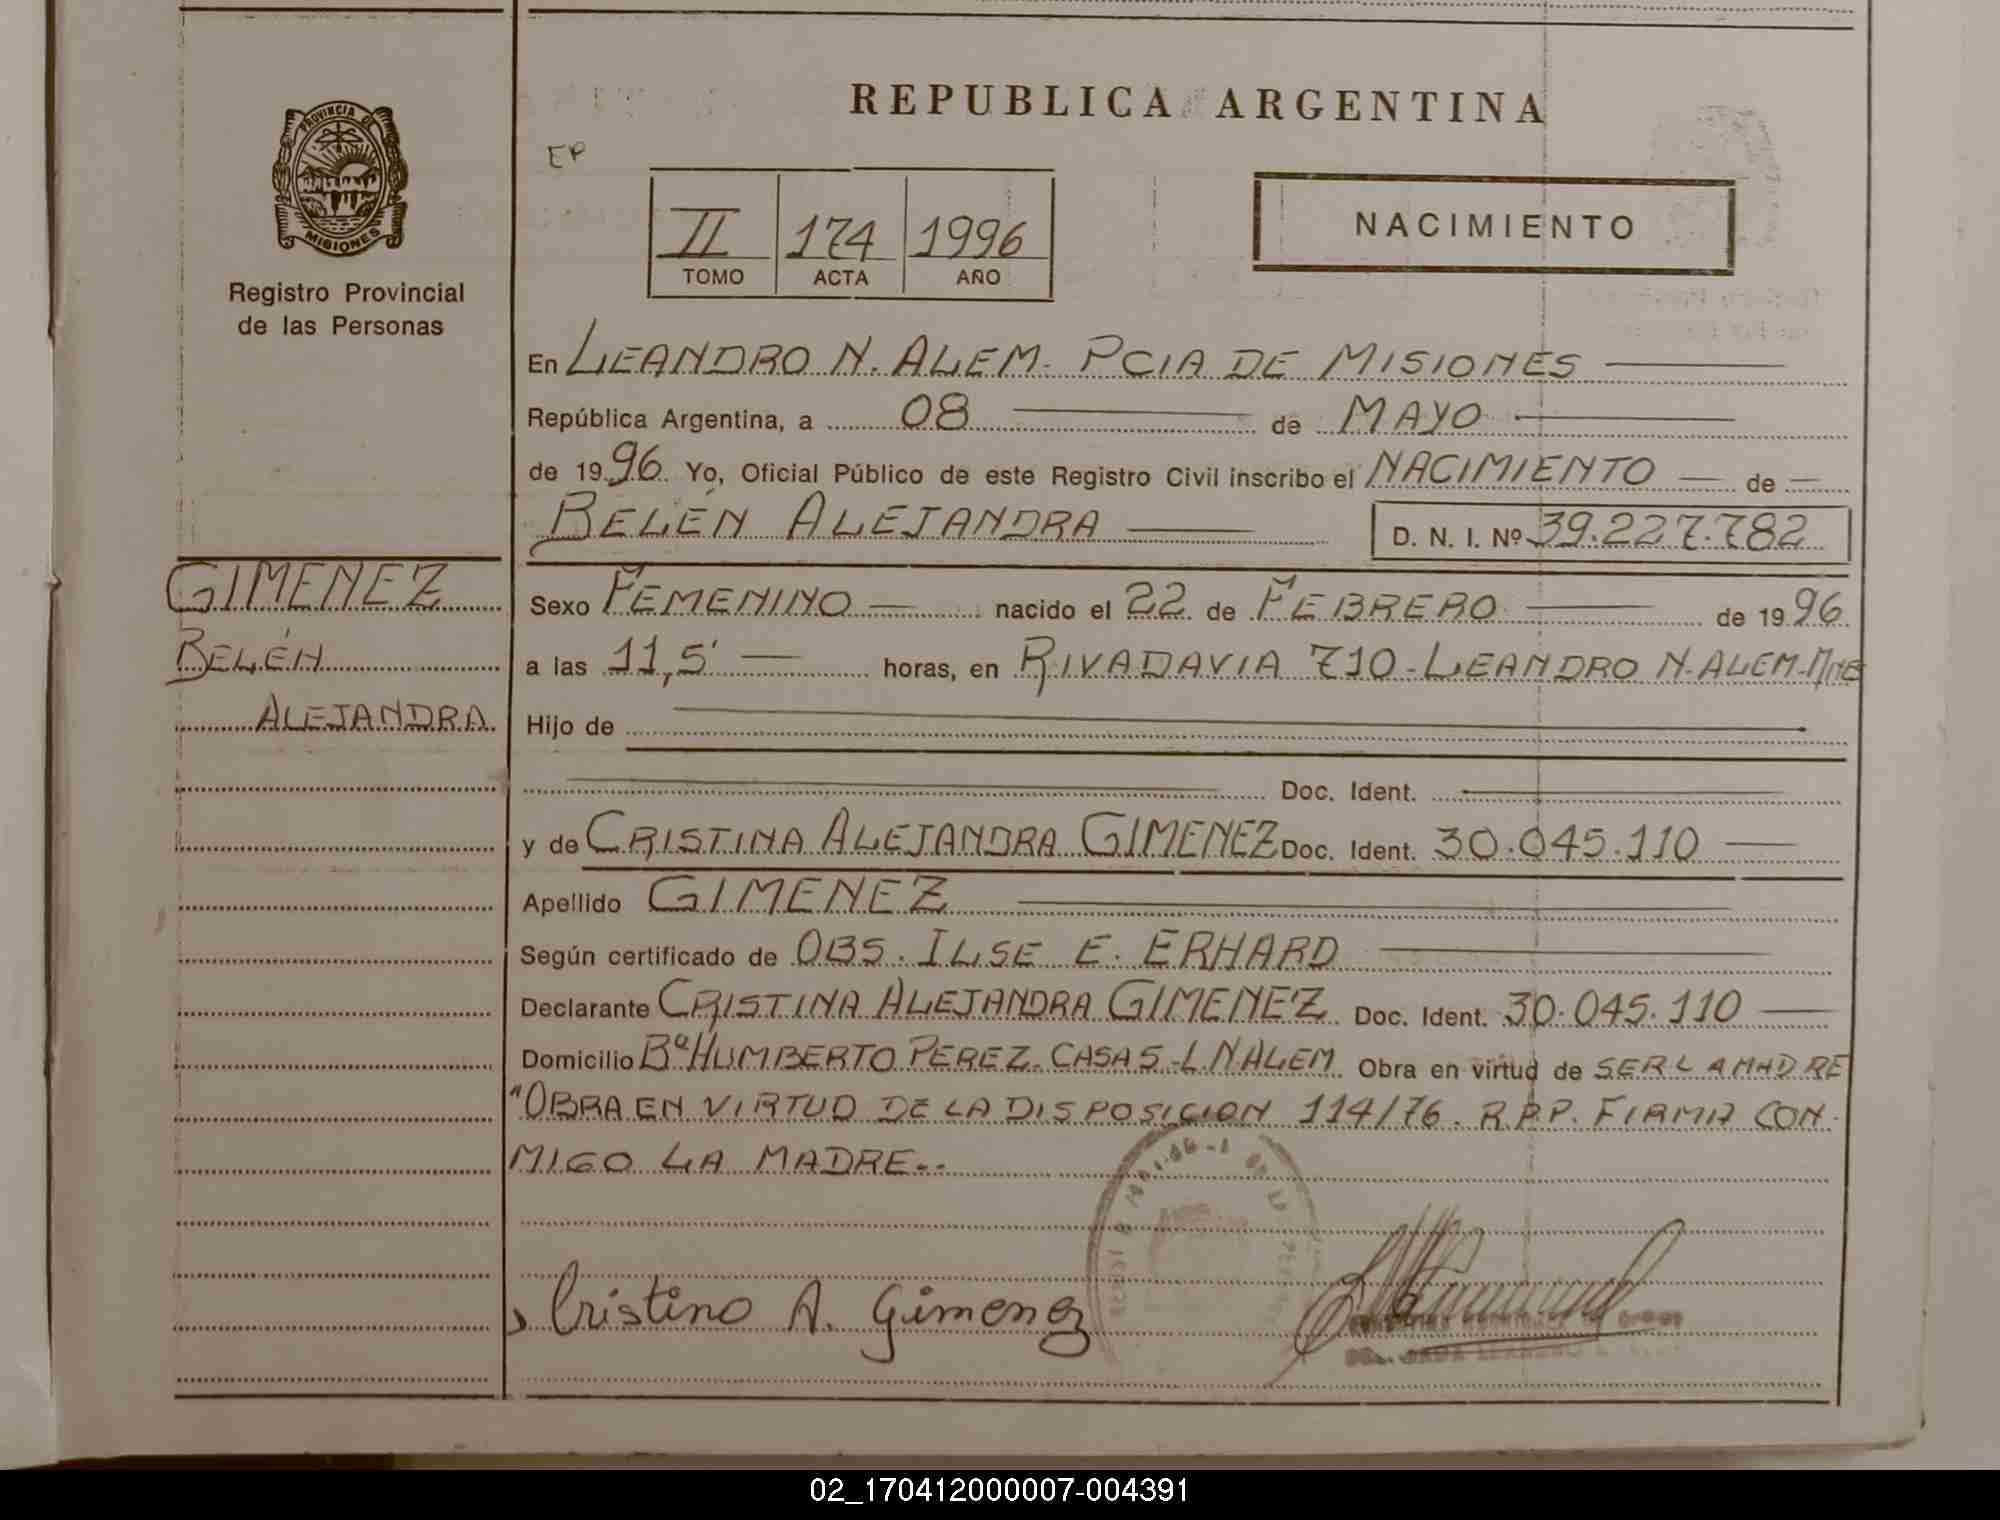 REPUBLICA ARGENTINA
PROVINCIA DE
MISIONES
Registro Provincial
de las Personas
EP
II 174 1996
TOMO ACTA AÑO
NACIMIENTO
En LEANDRO N. ALEM - PCIA DE MISIONES
República Argentina, a 08 de MAYO
de 1996 Yo, Oficial Público de este Registro Civil inscribo el NACIMIENTO de
BELÉN ALEJANDRA D. N. I. Nº 39.227.782
GIMENEZ
BELÉN
ALEJANDRA
Sexo FEMENINO nacido el 22 de FEBRERO de 1996
a las 11,5' horas, en RIVADAVIA 710 - LEANDRO N. ALEM -
Hijo de
Doc. Ident.
y de CRISTINA ALEJANDRA GIMENEZ Doc. Ident. 30.045.110
Apellido GIMENEZ
Según certificado de OBS. ILSE E. ERHARD
Declarante CRISTINA ALEJANDRA GIMENEZ Doc. Ident. 30.045.110
Domicilio Bº HUMBERTO PEREZ - CASA 5 - L. N ALEM Obra en virtud de SER LA MADRE
"OBRA EN VIRTUD DE LA DISPOSICION 114/76. R.P.P. FIRMA CON-
MIGO LA MADRE..
Cristina A. Gimenez
02_170412000007-004391